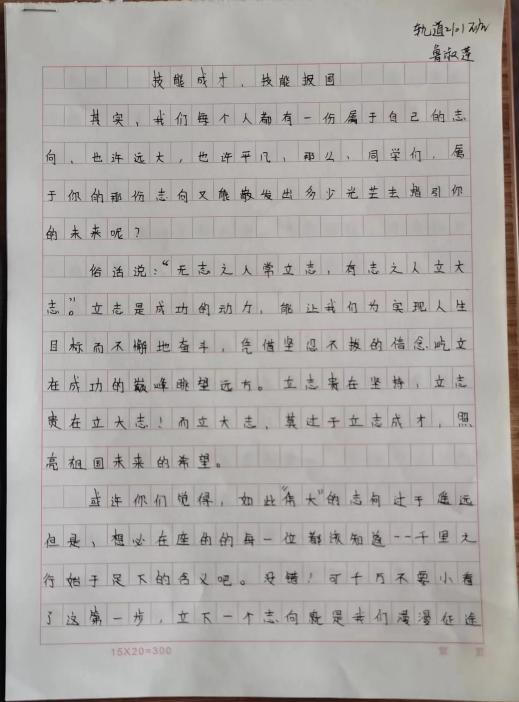 轨道2101班
鲁淑莲
技能成才，技能报国
其实，我们每个人都有一份属于自己的志
向，也许远大，也许平凡，那么，同学们，属
于你的那份志向又能散发出多少光芒去指引你
的未来呢？
俗话说：“无志之人常立志，有志之人立大
志”。立志是成功的动力，能让我们为实现人生
目标而不懈地奋斗，凭借坚忍不拔的信念屹立
在成功的巅峰眺望远方。立志贵在坚持，立志
贵在立大志！而立大志，莫过于立志成才，照
亮祖国未来的希望。
或许你们觉得，如此“伟大”的志向过于遥远
但是，想必在座的的每一位都该知道--千里之
行始于足下的含义吧。没错！可千万不要小看
了这第一步，立下一个志向既是我们漫漫征途
15X20=300
第 页